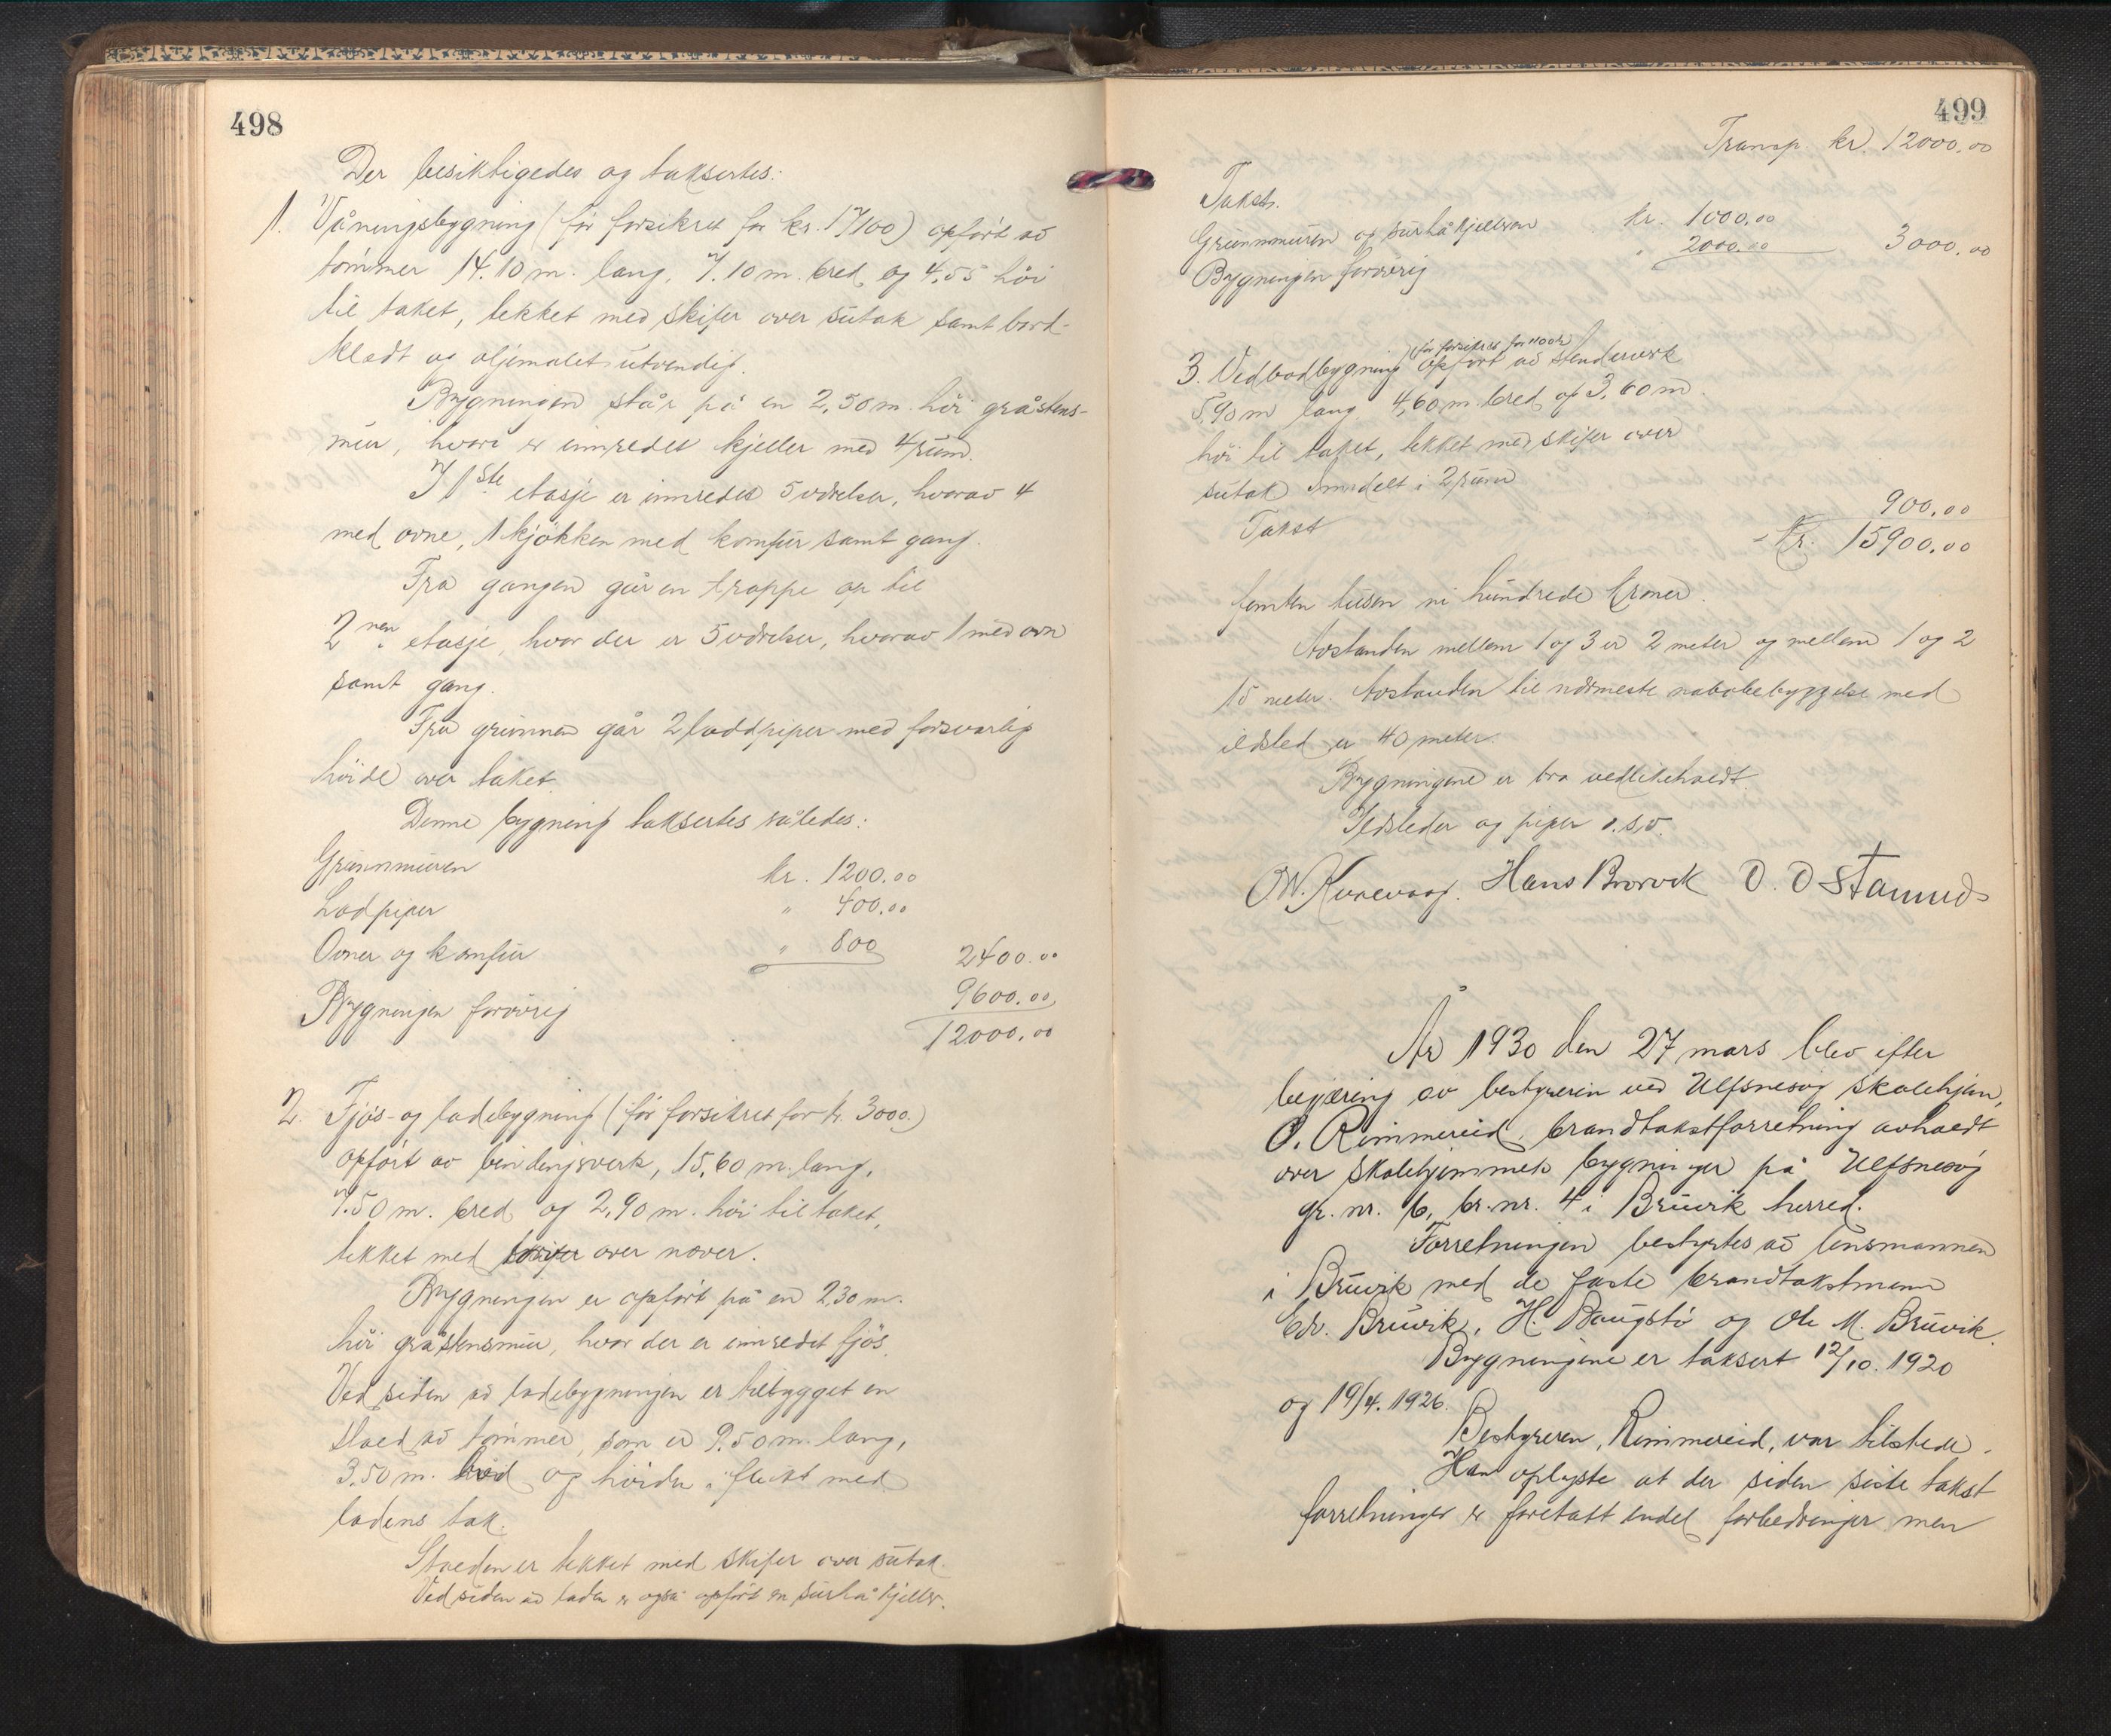 498
Der besiktigedes og taksertes:
1. Våningsbygning (før forsikret for kr. 17100) opført av
tømmer 14.10 m. lang, 7.10 m. bred og 4,55 høi
til taket, tekket med skifer over sutak samt bord-
klædt og oljemalet utvendig.
Bygningen står på en 2,50 m. høi gråstens-
mur, hvori er innredet kjeller med 4 rum.
I 1ste etasje er innredet 5 værelser, hvorav 4
med ovne, 1 kjøkken med komfur samt gang.
Fra gangen går en trappe op til
2nen etasje, hvor der er 5 værelser, hvorav 1 med ovn
samt gang.
Fra grunnen går 2 loddpiper med forsvarlig
høide over taket.
Denne bygning taksertes således:
Grunnmuren kr. 1200.00
Lodpiper " 400.00
Ovner og komfur " 800 2400.00
Bygningen forøvrig 9600.00
12000.00
2. Fjøs- og ladebygning (før forsikret for kr. 3000)
opført av bindingsverk, 15,60 m. lang,
7.50 m. bred og 2,90 m. høi til taket,
tekket med skifer over næver.
Bygningen er opført på en 2,30 m.
høi gråstensmur, hvor der er innredet fjøs.
Ved siden av ladebygningen er tilbygget en
stald av tømmer, som er 9.50 m. lang,
3,50 m. bred og høide i flukt med
ladens tak.
Stalden er tekket med skifer over sutak.
Ved siden av laden er også opført en surhåkjeller.
499
Transp. kr. 12000.00
Takst.
Grunnmuren og surhåkjelleren kr. 1000.00
Bygningen forøvrig " 2000.00 3000.00
(før forsikret for 1100 kr)
3. Vedbodbygning opført av stenderverk
5,90 m lang 4,60 m. bred og 3,60 m.
høi til taket, tekket med skifer over
sutak innndelt i 2 rum
Takst 900.00
Kr. 15900.00
femten tusen ni hundrede kroner.
Avstanden mellem 1 og 3 er 2 meter og mellem 1 og 2
15 meter. Avstanden til nærmeste nabobebyggelse med
ildsted er 40 meter.
Bygningene er bra vedlikeholdt.
Ildsteder og piper o.s.v.
O.W. Hans Brorvik O. O Stamnes
År 1930 den 27 mars blev efter
begjæring av bestyreren ved Ulfsnesøy skolehjem,
O. Rimmereid, brandtakstforretning avholdt
over skolehjemmets bygninger på Ulfsnesøy
gr. nr. 16, br. nr. 4 i Bruvik herred.
Forretningen bestyrtes av lensmannen
i Bruvik med de faste brandtakstmenn
Edv. Bruvik, H. Daugstø og Ole M. Bruvik.
Bygningene er taksert 12/10. 1920
og 19/4. 1926.
Bestyreren, Rimmereid, var tilstede.
Han oplyste at der siden siste takst
forretninger er foretatt endel forbedringer men